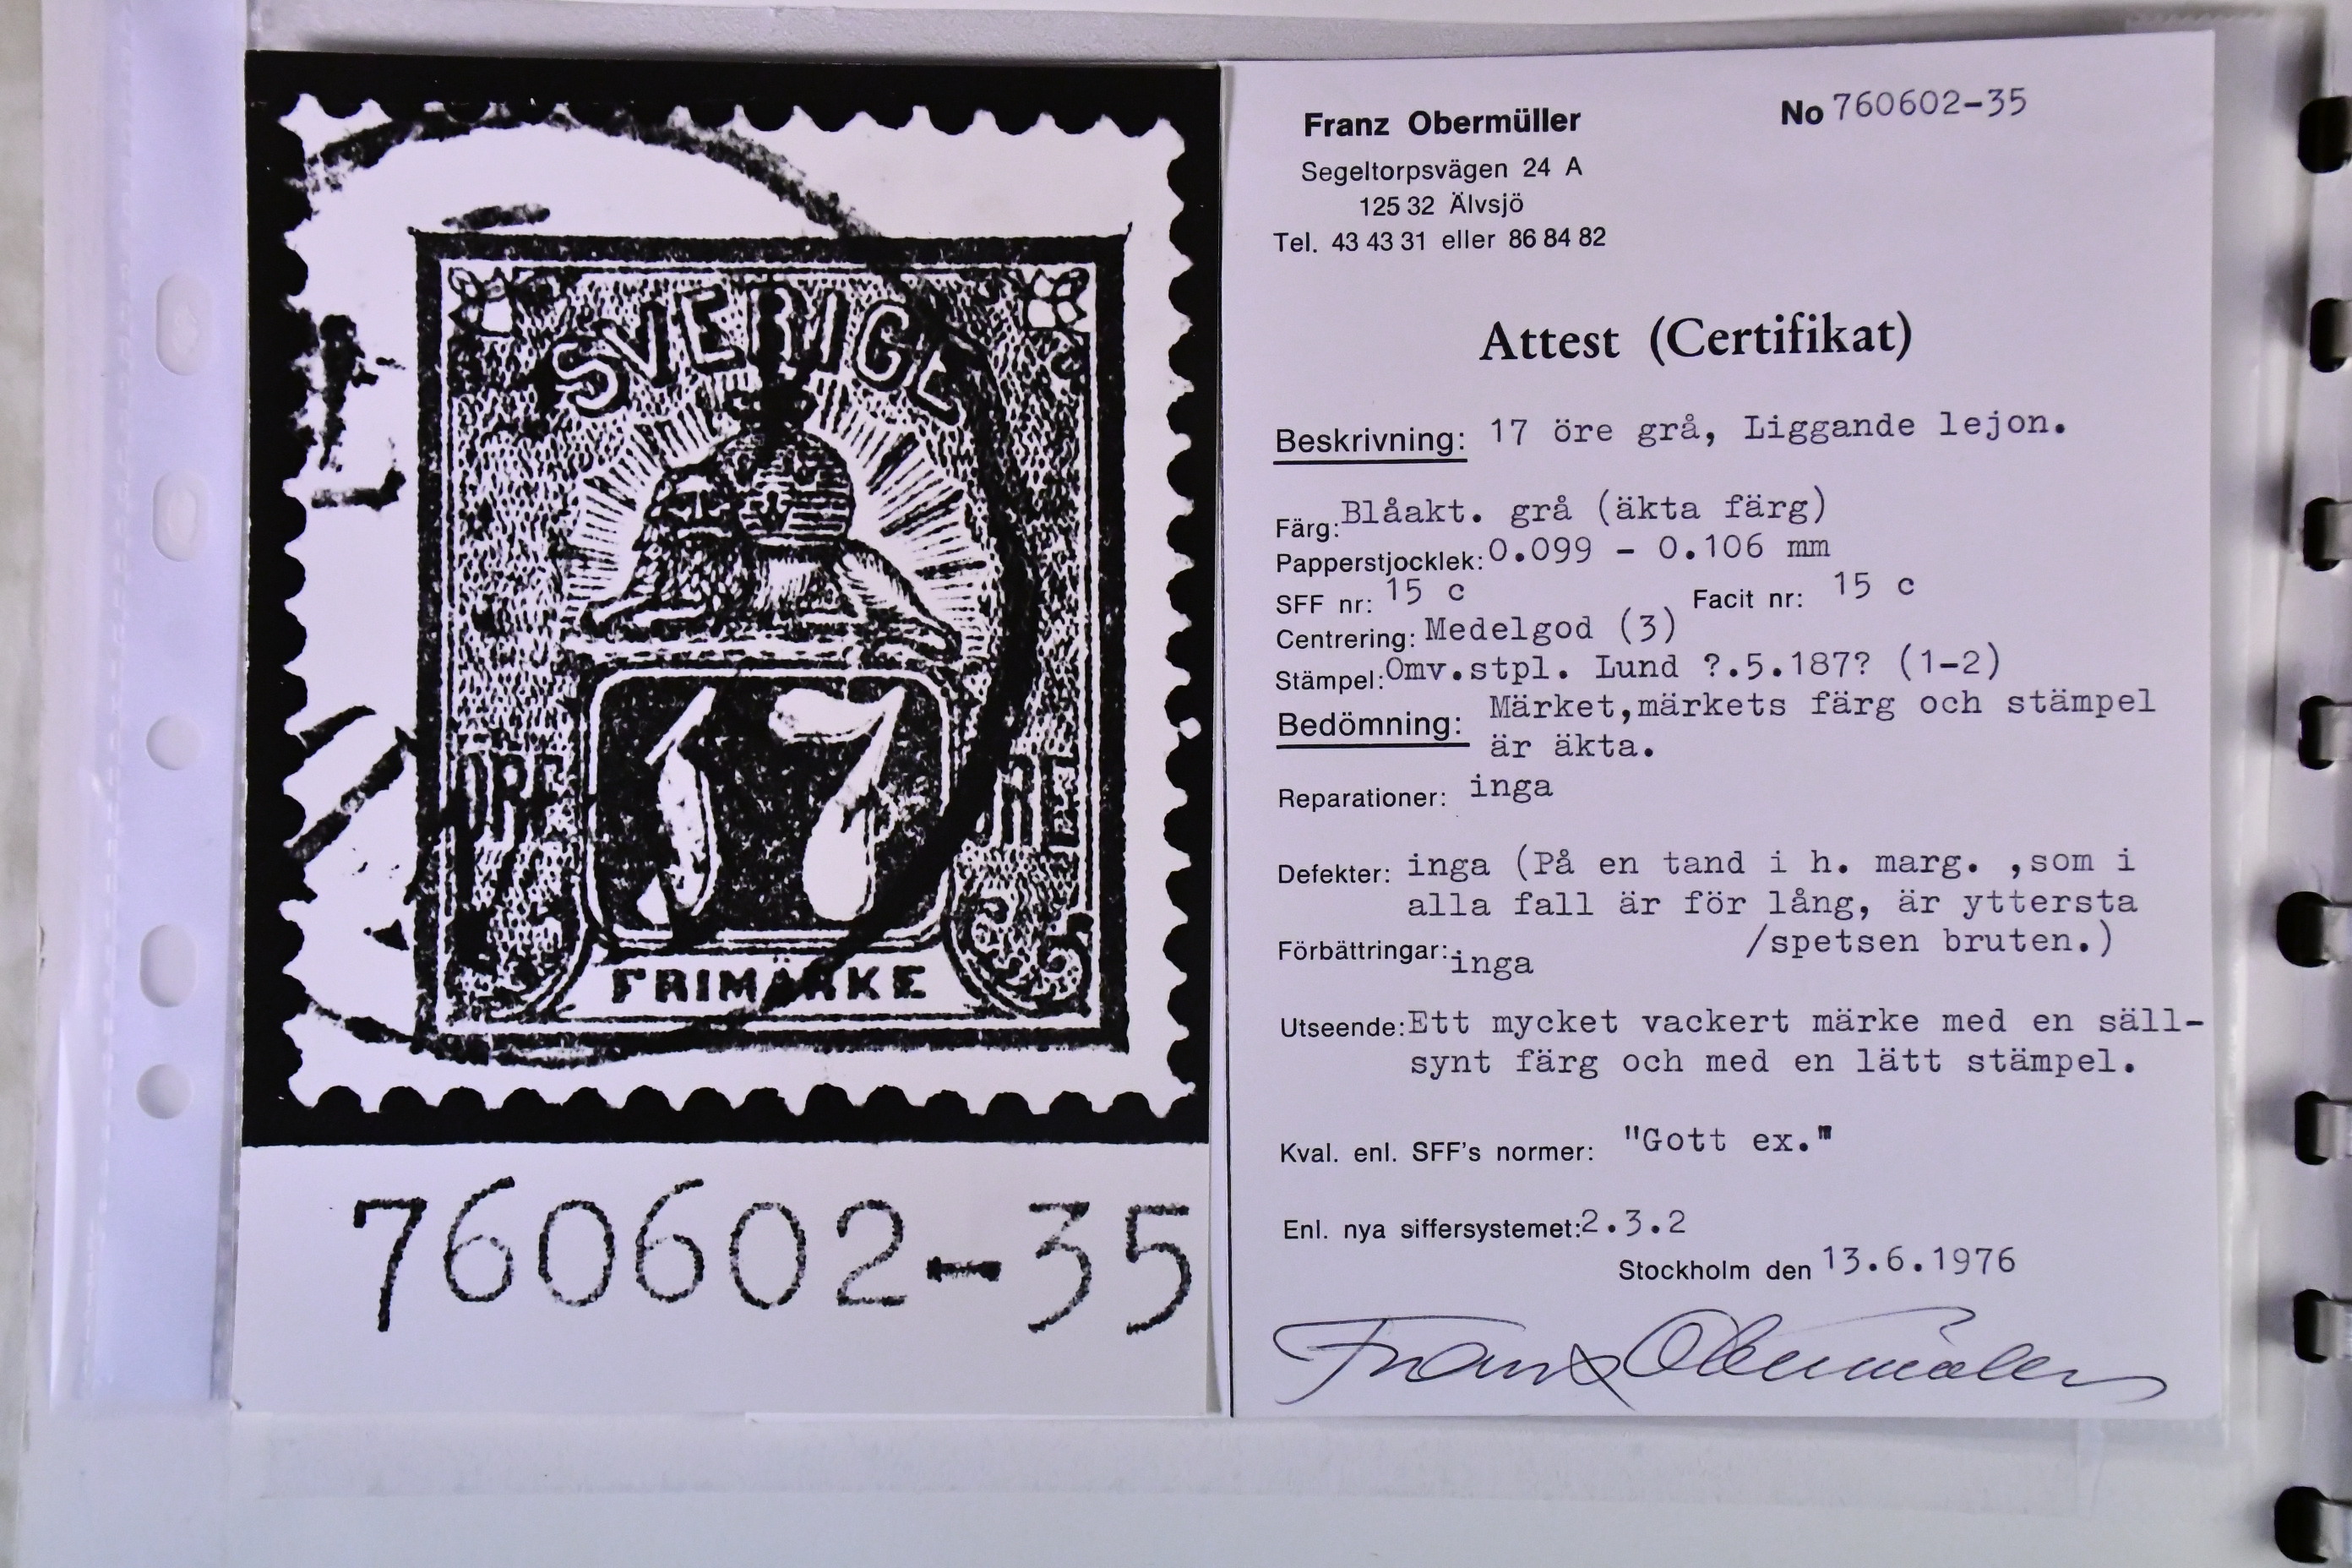 SVERIGE
17
ÖRE
ÖRE
FRIMÄRKE
760602-35
Franz Obermüller
No 760602-35
Segeltorpsvägen 24 A
125 32 Älvsjö
Tel. 43 43 31 eller 86 84 82
Attest (Certifikat)
Beskrivning: 17 öre grå, Liggande lejon.
Färg: Blåakt. grå (äkta färg)
Papperstjocklek: 0.099 - 0.106 mm
SFF nr: 15 c Facit nr: 15 c
Centrering: Medelgod (3)
Stämpel: Omv.stpl. Lund ?.5.187? (1-2)
Bedömning: Märket,märkets färg och stämpel
är äkta.
Reparationer: inga
Defekter: inga (På en tand i h. marg. ,som i
alla fall är för lång, är yttersta
/spetsen bruten.)
Förbättringar: inga
Utseende: Ett mycket vackert märke med en säll-
synt färg och med en lätt stämpel.
Kval. enl. SFF's normer: "Gott ex."
Enl. nya siffersystemet: 2.3.2
Stockholm den 13.6.1976
Franz Obermüller